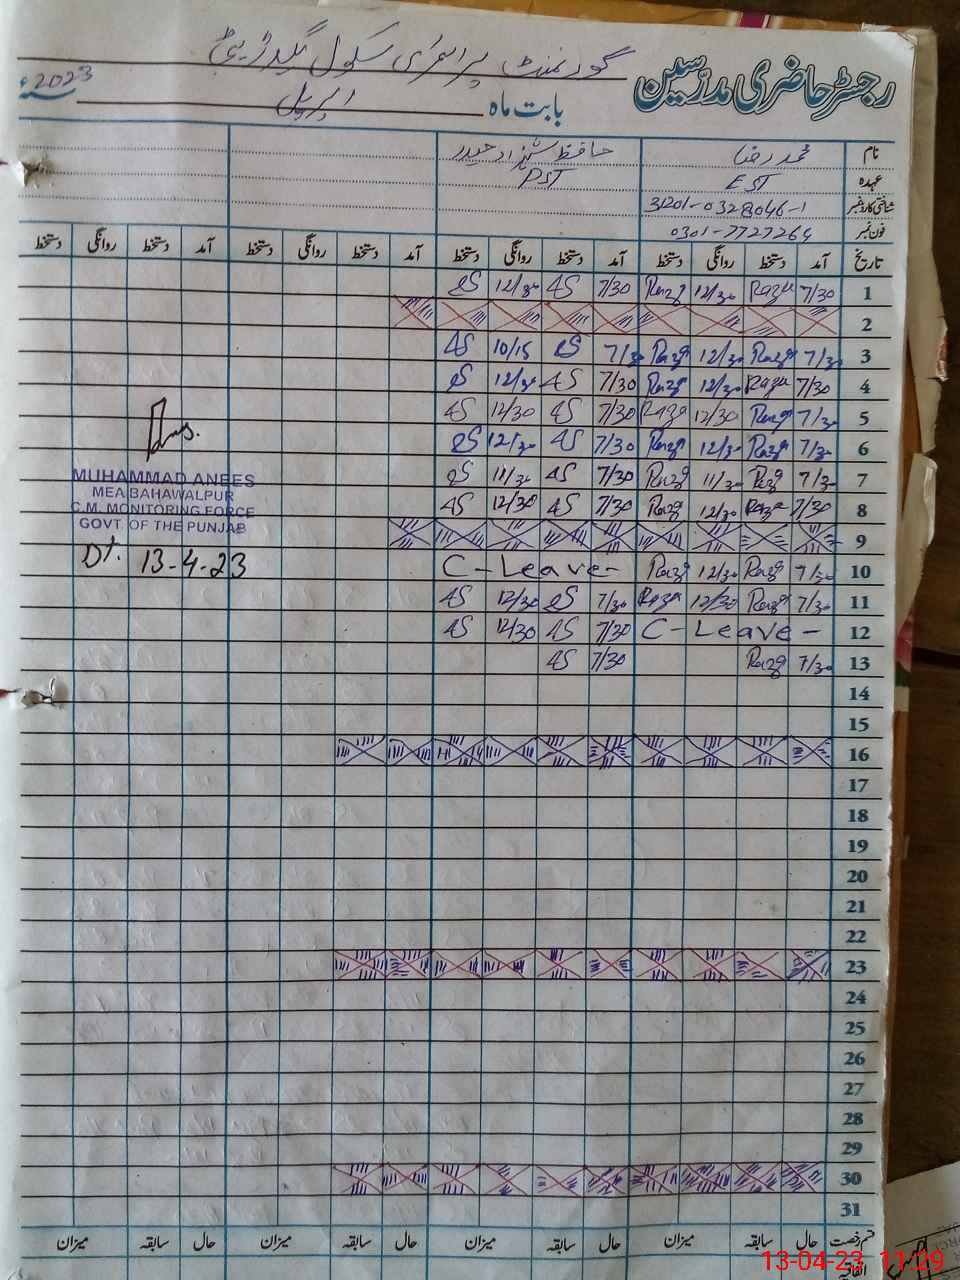 گورنمنٹ پرائمری سکول
رجسٹر حاضری مدرسین
بابت ماہ اپریل 2023ء
نام محمد رضا حافظ شہزاد حیدر
عہدہ EST PST
شناختی کارڈ نمبر 31201-0328046-1
فون نمبر 0301-7727264
تاریخ آمد دستخط روانگی دستخط آمد دستخط روانگی دستخط آمد دستخط روانگی دستخط آمد دستخط روانگی دستخط
1 7/30 Raza 12/30 Raza 7/30 AS 12/30 AS
2
3 7/30 Raza 12/30 Raza 7/30 AS 10/15 AS
4 7/30 Raza 12/30 Raza 7/30 AS 12/30 AS
5 7/30 Raza 12/30 Raza 7/30 AS 12/30 AS
6 7/30 Raza 12/30 Raza 7/30 AS 12/30 AS
7 7/30 Raza 11/30 Raza 7/30 AS 11/30 AS
8 7/30 Raza 12/30 Raza 7/30 AS 12/30 AS
9
10 7/30 Raza 12/30 Raza C-Leave-
11 7/30 Raza 12/30 Raza 7/30 AS 12/30 AS
12 C-Leave- 7/30 AS 12/30 AS
13 7/30 Raza 7/30 AS
14
15
16
17
18
19
20
21
22
23
24
25
26
27
28
29
30
31
قسم رخصت حال سابقہ میزان حال سابقہ میزان حال سابقہ میزان حال سابقہ میزان
اتفاقیہ
MUHAMMAD ANEES
MEA BAHAWALPUR
C.M. MONITORING FORCE
GOVT. OF THE PUNJAB
Dt. 13-4-23
13-04-23 11:29